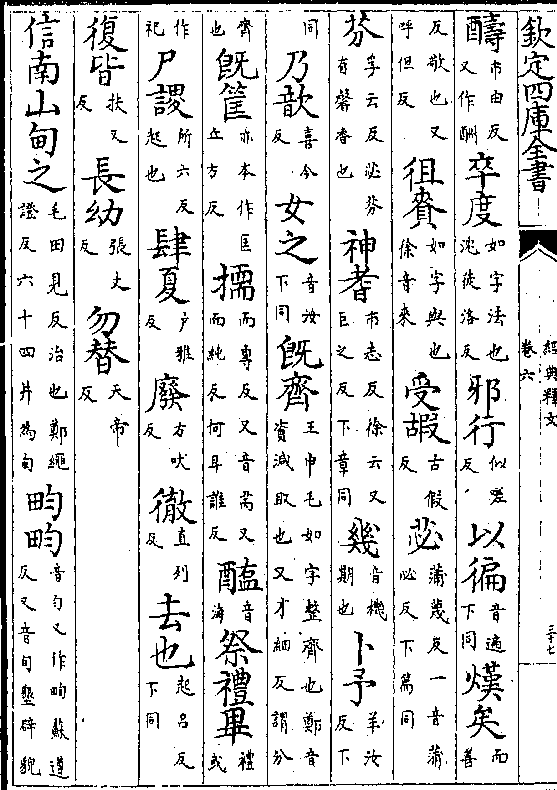 欽定四庫全書 經典釋文 卷六 三十七
醻市由反又作酬卒度如字法也沈徒洛反邪行似嗟反以徧音遍下同熯矣而善
反敬也又呼但反徂賚如字與也徐音來受嘏古假反苾蒲蔑反一音蒲必反下篇同
芬孚云反苾芬有馨香也神耆市志反徐云又巨之反下章同幾音機期也卜予羊汝反下
同乃歆喜今反女之音汝下同既齊王申毛如字整齊也鄭音資減取也又才細反謂分
齊也既筐亦本作匡丘方反擩而專反又音芮又而純反何耳誰反醢音海祭禮畢禮或
作祀尸謖所六反起也肆夏户雅反廢方吠反徹直列反去也起呂反下同
復皆扶又反長幼張丈反勿替天帝反
信南山甸之毛田見反治也鄭繩證反六十四井為甸畇畇音勻又作㽦蘇遵反又音旬墾辟貌